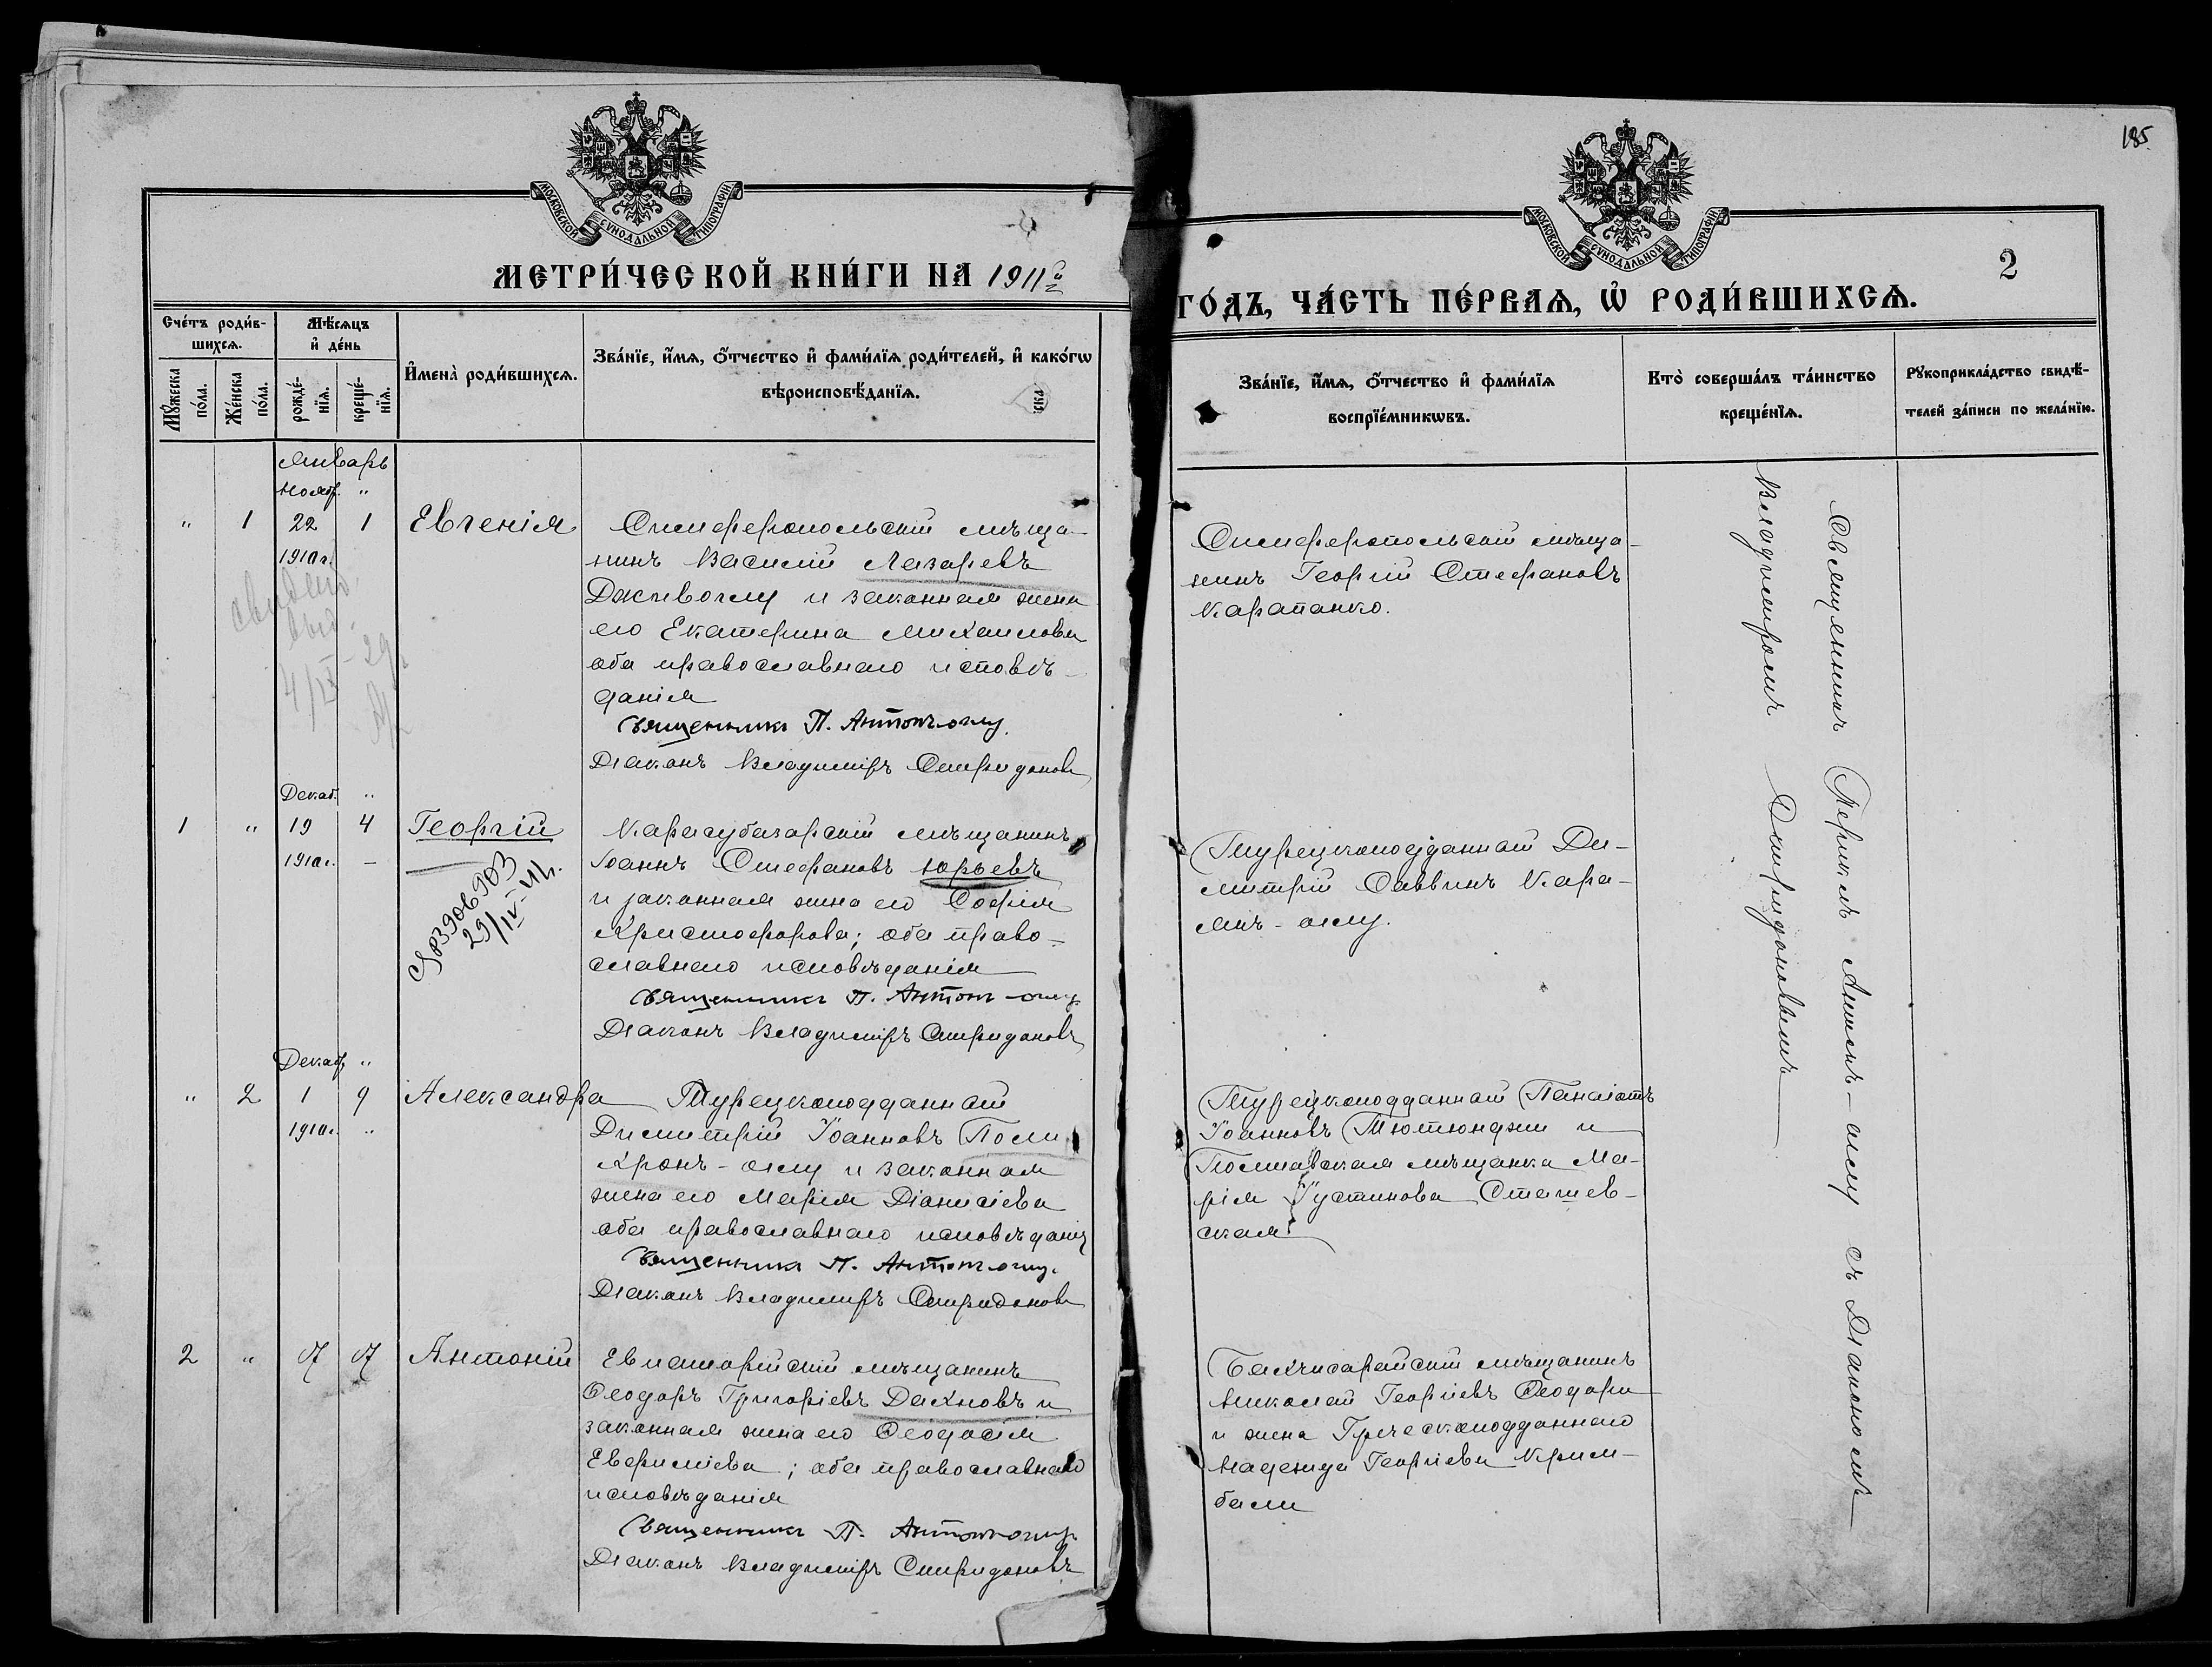 185.
МОСКОВСКОЙ СѴНОДАЛЬНОЙ ТИПОГРАФІИ
МОСКОВСКОЙ СѴНОДАЛЬНОЙ ТИПОГРАФІИ
2
МЕТРИ́ЧЕСКОЙ КНИ́ГИ НА 1911й
ГО́ДЪ, ЧА́СТЬ ПЕ́РВАѦ, Ѡ҆ РОДИ́ВШИХСѦ.
Сче́тъ роди́в-
шихсѧ.
Мꙋ́жеска по́ла.
Же́нска по́ла.
Мѣ́сѧцъ
и҆ де́нь
рожде́-
нїѧ.
креще́-
нїѧ.
И҆мена̀ роди́вшихсѧ.
Зва́нїе, и҆́мѧ, ѻ҆́тчество и҆ фами́лїѧ роди́телей, и҆ како́гѡ
вѣроисповѣ́данїѧ.
Зва́нїе, и҆́мѧ, ѻ҆́тчество и҆ фами́лїѧ
воспрїе́мникѡвъ.
Кто̀ соверша́лъ та́инство
креще́нїѧ.
Рꙋкоприкла́дство свидѣ́-
телей за́писи по жела́нїю.
Январь
Ноябр. "
" 1 22 1 Евгенія
1910 г.
Симферопольскій мѣща-
нинъ Василій Лазаревъ
и законная жена
его Екатерина Михаилова
оба православнаго исповѣ-
данія
Священникъ П. Антонъ-оглу.
Діаконъ Владиміръ Спиридоновъ
Симферопольскій мѣща-
нинъ Георгій Стефановъ
Карапанко.
4/IX - 29
Декаб. "
1 " 19 4 Георгій
1910 г. –
29/IV-41г.
Карасубазарскій мѣщанинъ
Іоаннъ Стефановъ Юрьевъ
и законная жена его Софія
Христофорова; оба право-
славнаго исповѣданія
Священникъ П. Антонъ-оглу
Діаконъ Владиміръ Спиридоновъ
Турецкоподданный Ди-
митрій Саввинъ Кара-
янъ-оглу.
Декаб. "
" 2 1 9 Александра
1910 г. "
Турецкоподданный
Димитрій Іоанновъ Поли-
хронъ-оглу и законная
жена его Марія Діонисіева
оба православнаго исповѣданія
Священникъ П. Антонъ-оглу.
Діаконъ Владиміръ Спиридоновъ
Турецкоподданный Панаіотъ
Іоанновъ Тютюнджи и
Полтавская мѣщанка Ма-
рія Іустинова Сташев-
ская
2 " 17 17 Антоній
Евпаторійскій мѣщанинъ
Ѳеодоръ Григоріевъ Дахновъ и
законная жена его Ѳеодосія
Евфиміева; оба православнаго
исповѣданія
Священникъ П. Антонъ-оглу
Діаконъ Владиміръ Спиридоновъ
Бахчисарайскій мѣщанинъ
Николай Георгіевъ Ѳеодори
и жена Греческоподданнаго
Надежда Георгіева Крим-
бали
Священникъ Периклъ Антонъ-оглу съ Діакономъ
Владиміромъ Спиридоновымъ